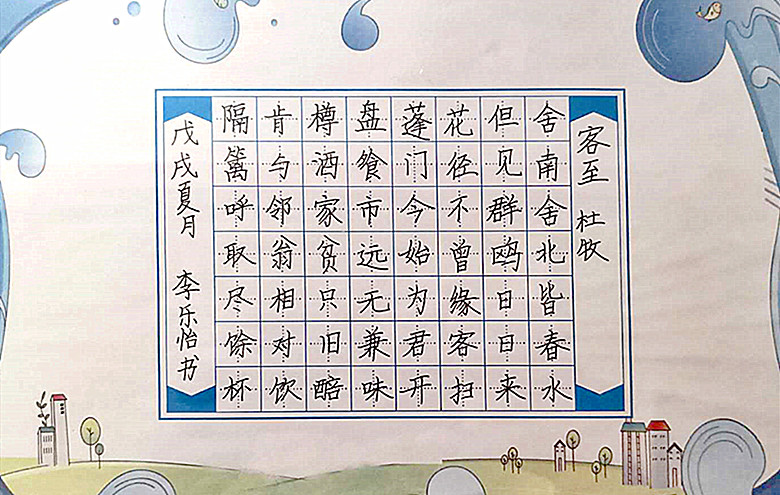 客至 杜牧
舍南舍北皆春水
但见群鸥日日来
花径不曾缘客扫
蓬门今始为君开
盘飧市远无兼味
樽酒家贫只旧醅
肯与邻翁相对饮
隔篱呼取尽馀杯
戊戌夏月 李乐怡书